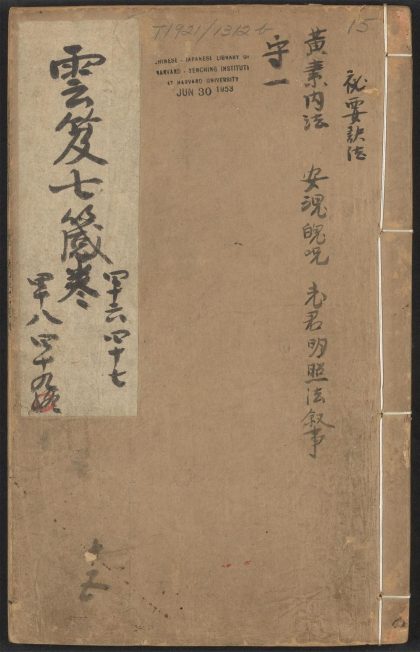 T1921/1312 b
15
CHINESE - JAPANESE LIBRARY OF
HARVARD - YENCHING INSTITUTE
AT HARVARD UNIVERSITY
JUN 30 1953
秘要訣法
黃素內法 安魂魄咒 老君明照法叙事
守一
雲笈七籤卷
四十六 四十七
四十八 四十九
十五